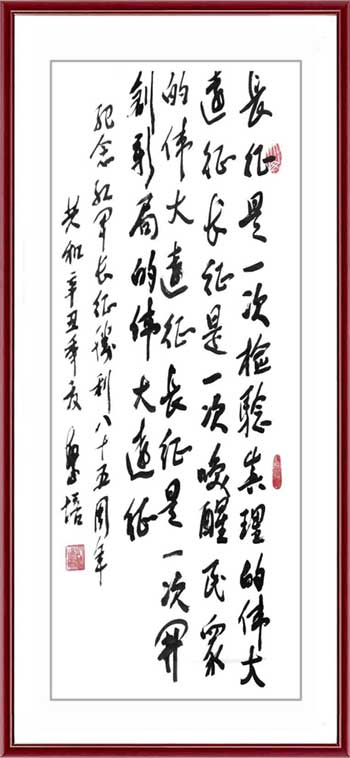 長征是一次检驗真理的伟大
遠征长征是一次唤醒民眾
的伟大遠征長征是一次開
創新局的伟大遠征
纪念红军长征勝利八十五周年
共和辛丑年夏